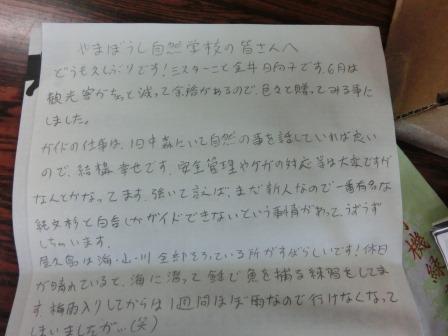 やまぼうし自然学校の皆さんへ
どうも久しぶりです！ミスターこと金井日向子です。6月は
観光客がちょっと減って余裕があるので、色々と贈ってみる事に
しました。
ガイドの仕事は、1日中森にいて自然の事を話していれば良い
ので、結構幸せです。安全管理やケガの対応等は大変ですが
なんとかなってます。強いて言えば、まだ新人なので一番有名な
縄文杉と白谷しかガイドできないという事情があって、うずうず
しちゃいます。
屋久島は海・山・川全部そろっている所がすばらしいです！休日
が晴れていると、海に潜って銛で魚を捕る練習をしてま
す。梅雨入りしてからは1週間ほぼ雨なので行けなくなって
しまいましたが…（笑）
機